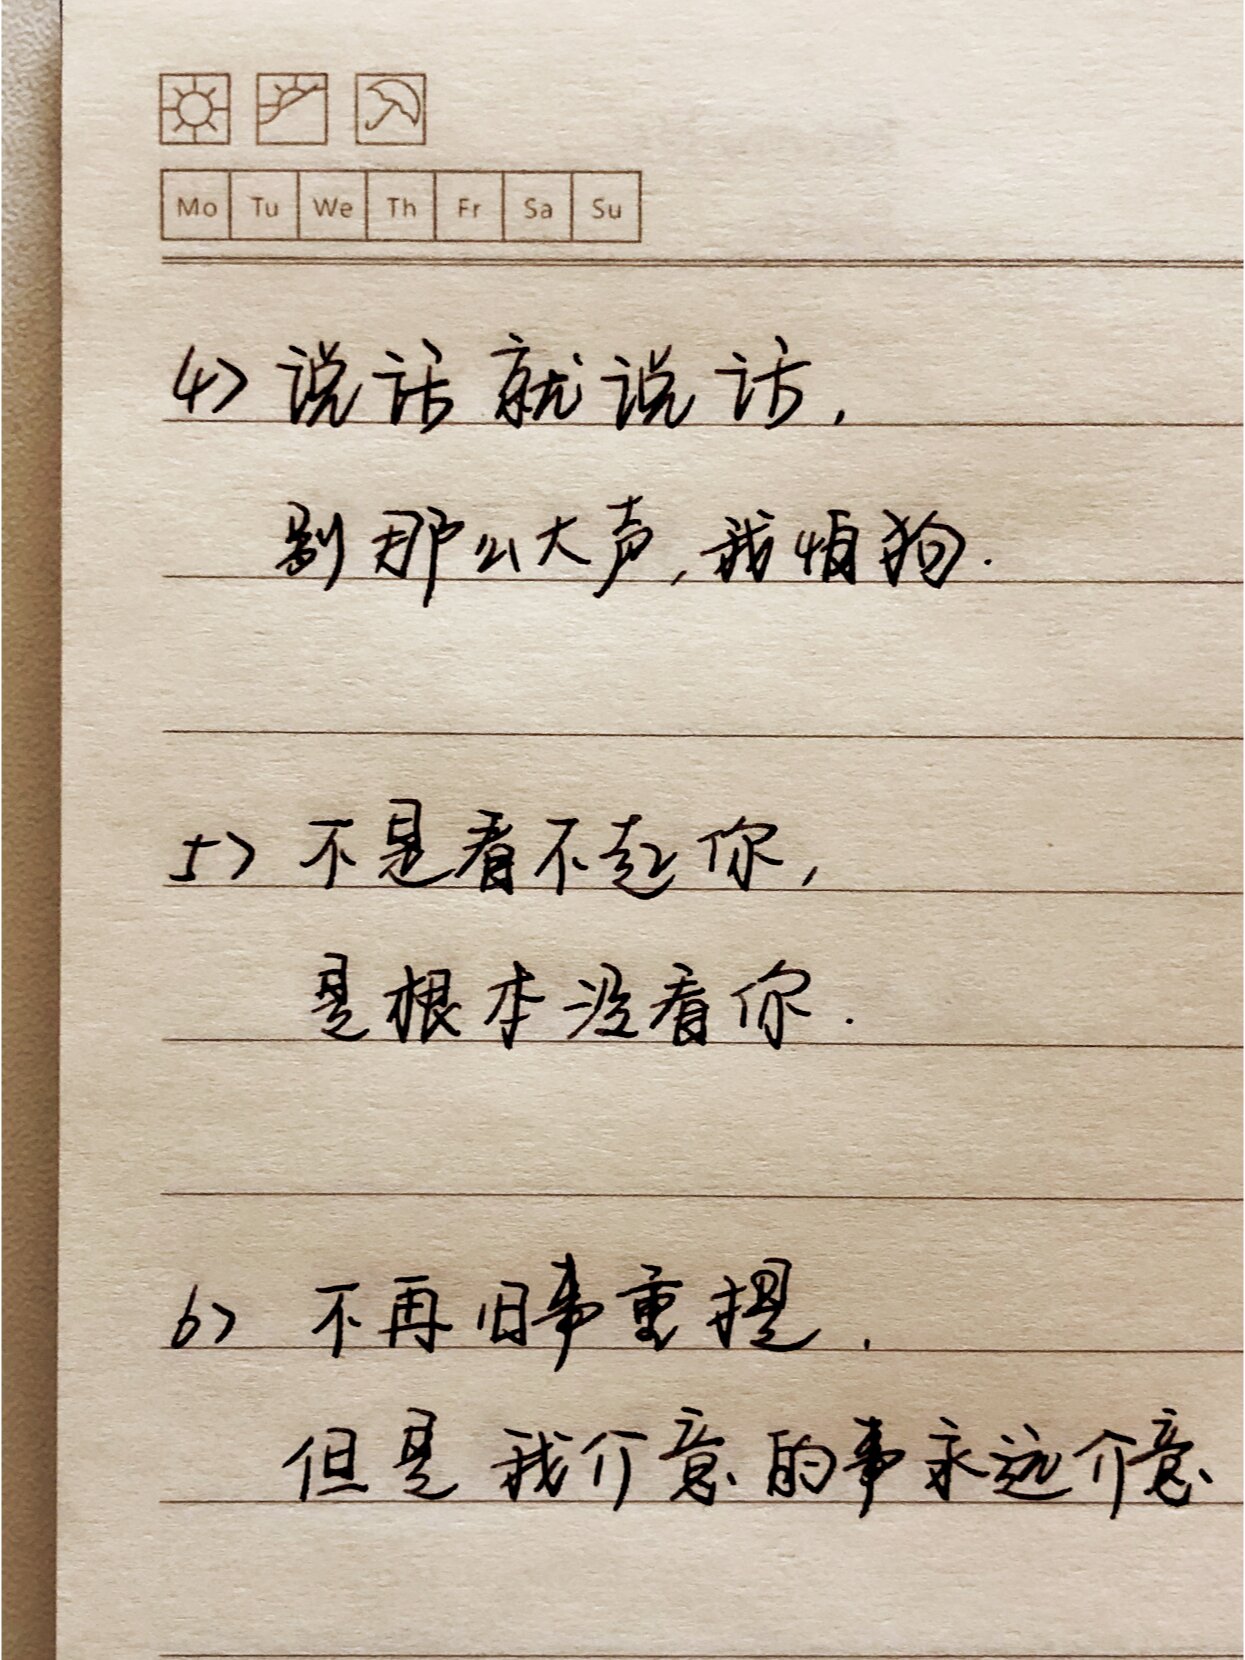 Mo Tu We Th Fr Sa Su
4> 说话就说话,
别那么大声,我怕狗.
5> 不是看不起你,
是根本没看你.
6> 不再旧事重提.
但是我介意的事永远介意